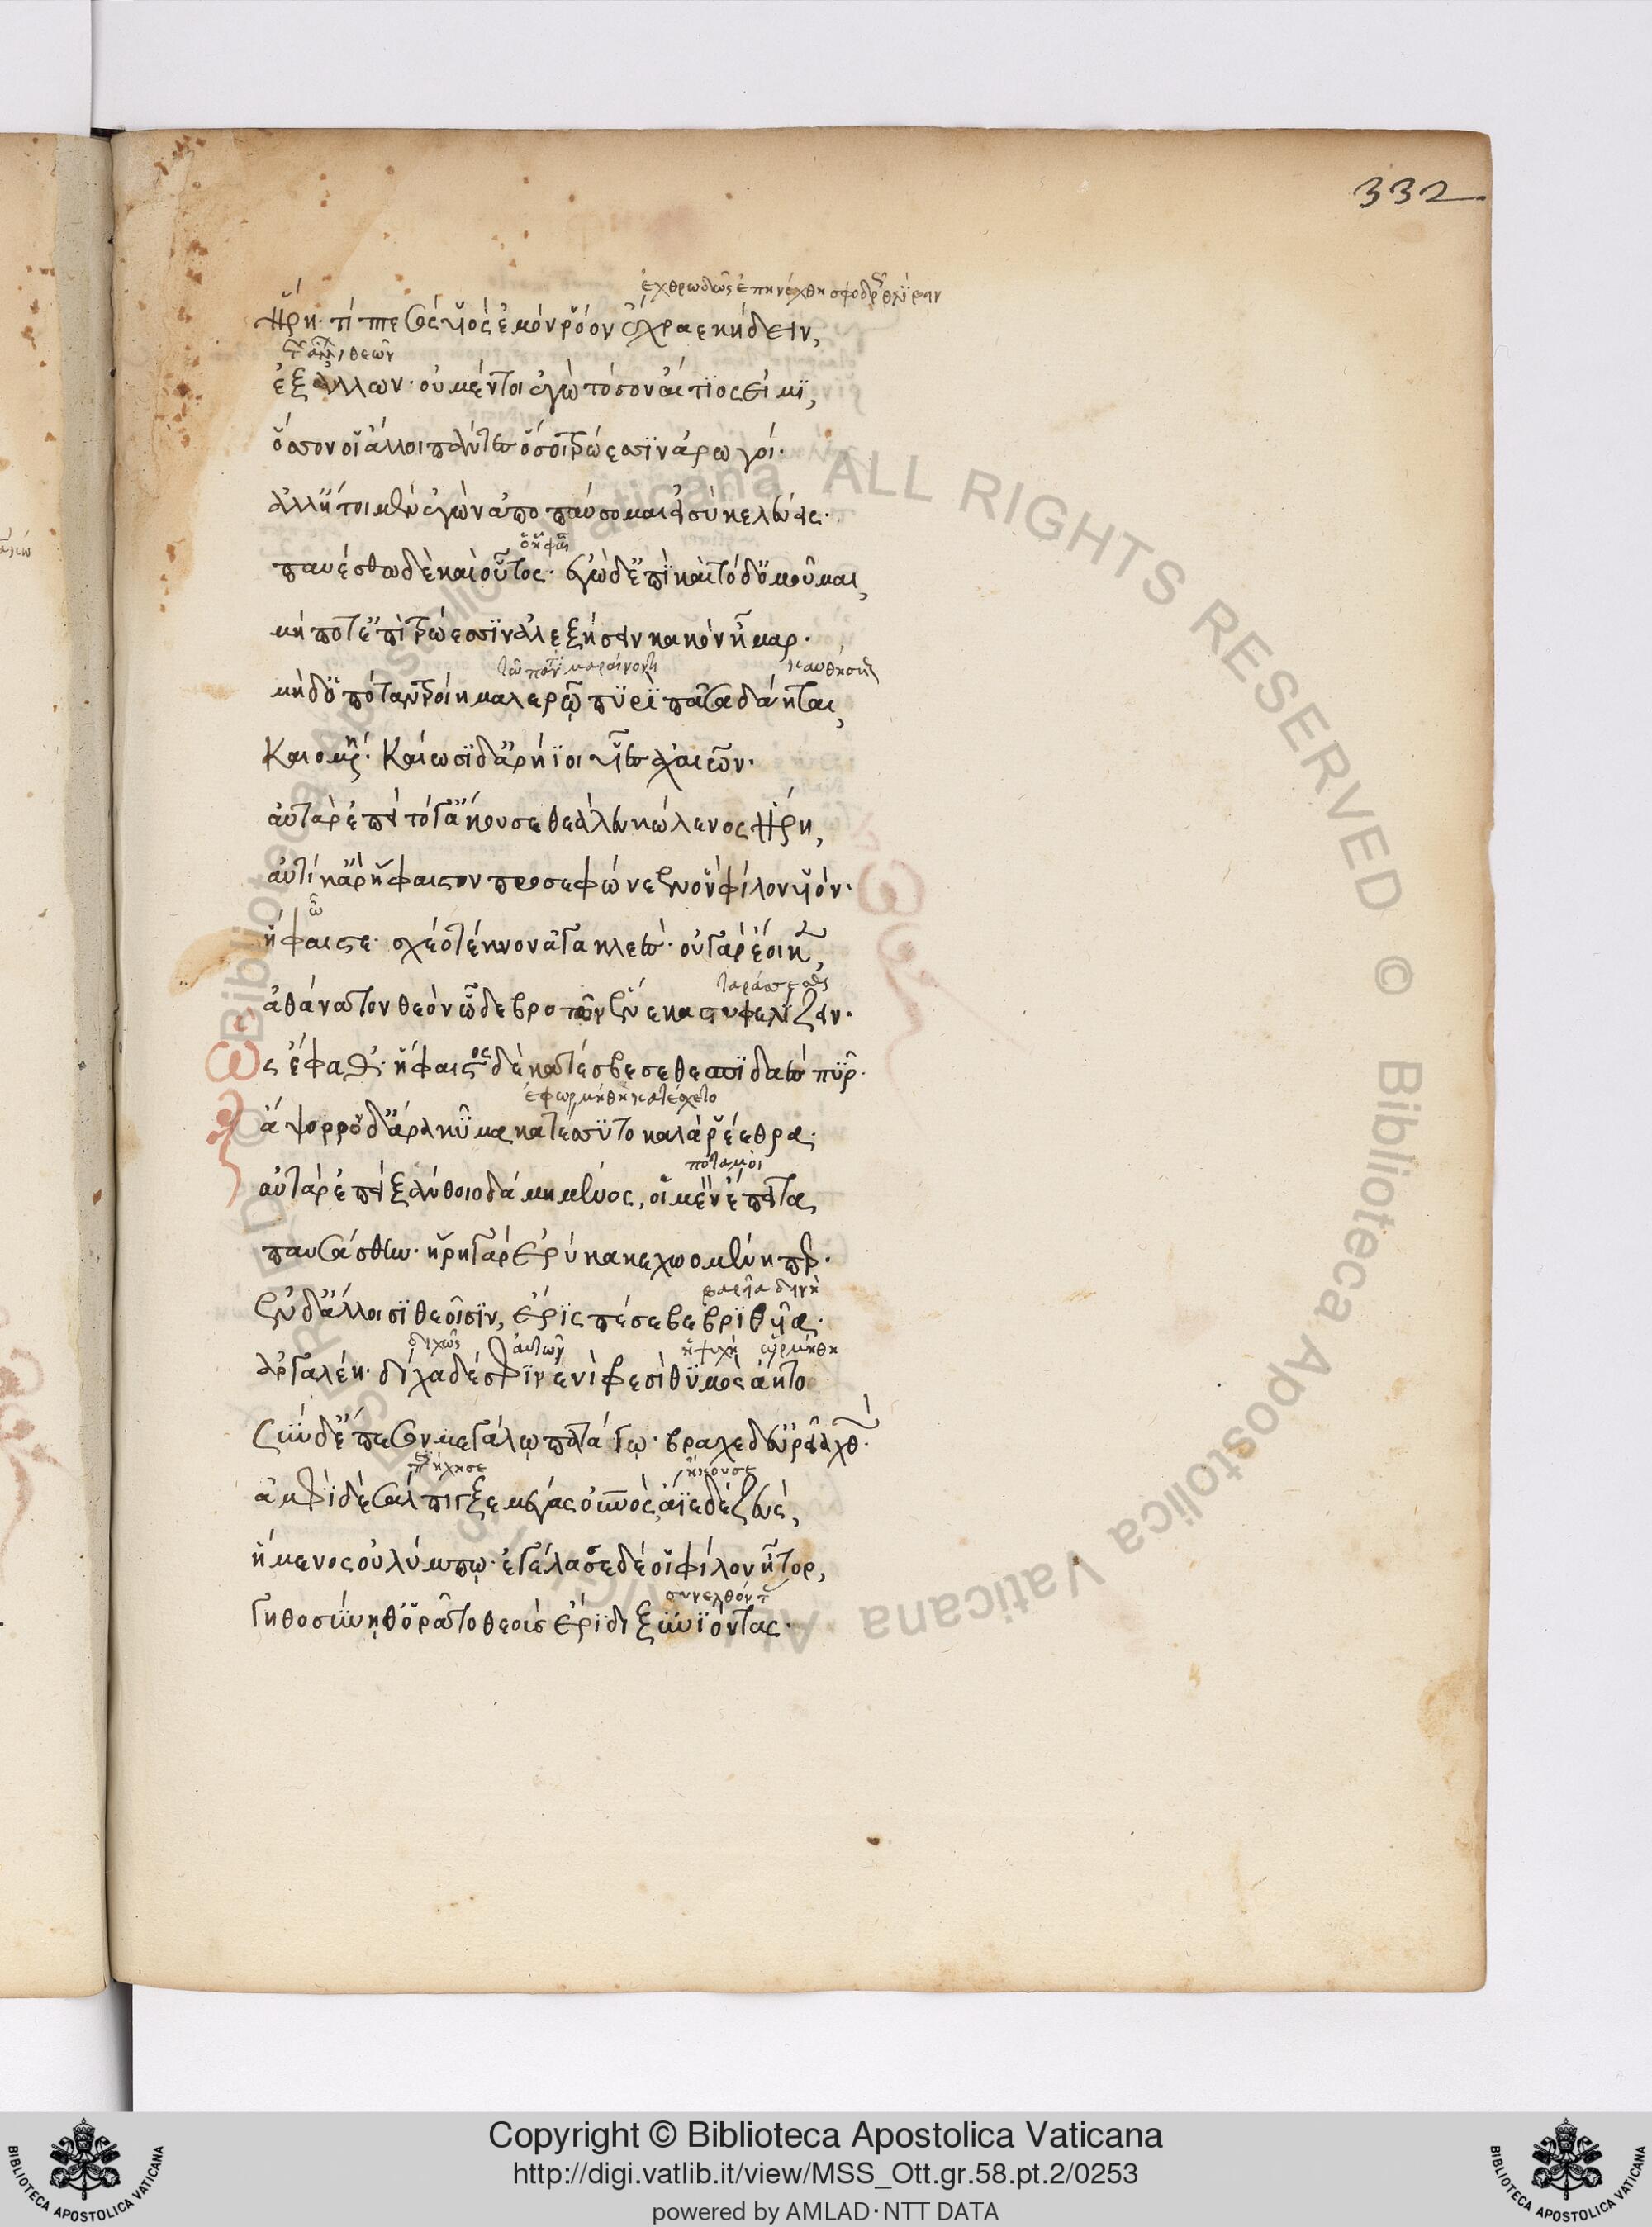 332
ἐχθρωδῶς ἐπηνέχθη σφοδρῶς θλίβειν
Ἥρη· τί πτε σὸς υἱὸς ἐμὸν ῥόον ἔχραε κήδειν,
θεῶν
ἐξ ἄλλων· οὐ μέν τοι ἐγὼ τόσον αἴτϊος εἰμϊ,
ὅσσον οἱ ἄλλοι πάντες ὅσοι τρώεσσϊν ἀρωγοί·
ἀλλ' ἤτοι μὲν ἐγὼν ἀποπαύσομαι εἰ σὺ κελεύεις·
παυέσθω δὲ καὶ οὗτος· ἐγὼ δ' ἐπϊ καὶ τόδ' ὀμοῦμαι,
μήποτ' ἐπὶ τρώεσσϊν ἀλεξήσειν κακὸν ἦμαρ·
καυθήσηται
μὴδ' ὁπότ' ἂν τροίη μαλερῷ πῢρϊ πᾶσα δάηται,
Καιομένη· Καίωσϊ δ' ἀρήϊοι υἷες ἀχαιῶν·
αὐτὰρ ἐπεὶ τόγ' ἄκουσε θεὰ λευκώλενος Ἥρη,
αὐτίκ' ἄρ' ἥφαιστον προσεφώνεεν ὃν φίλον υἱόν·
ὦ
ἥφαιστε· σχέο τέκνον ἀγακλεές· οὐ γὰρ ἔοικεν,
ταράσσειν
ἀθάνατον θεὸν ὧδε βροτῶν ἕνεκα στυφελίζειν·
Ὣς ἔφαθ'· ἥφαιστος δὲ κατέσβεσε θεσπϊδαὲς πῦρ·
ἐφωρμήθη κατέχετο
ἄψορρον δ' ἄρα κῦμα κατέσσϋτο καλὰ ῥέεθρα·
ποταμοὶ
αὐτὰρ ἐπεὶ ξάνθοιο δάμη μένος, οἱ μὲν ἔπειτα
παυσάσθην· ἥρη γὰρ ἐρύκακε χωομένη περ·
βαρεῖα δεινὴ
Ἐν δ' ἄλλοισϊ θεοῖσϊν, ἔρϊς πέσε βεβρϊθυῖα·
διχῶς αὐτῶν ἡ ψυχὴ ὡρμήθη
ἀργαλέη· δίχα δέ σφϊν ἐνὶ φρεσὶ θϋμὸς ἄητο
Σὺν δ' ἔπεσον μεγάλῳ πατάγῳ· βράχε δ' εὐρεῖα χθών·
ἤχησε ἤκουσε
ἀμφὶ δὲ σάλπιγξε μέγας οὐρανός, ἄϊε δὲ ζεύς,
ἥμενος οὐλύμπῳ· ἐγέλασσε δέ οἱ φίλον ἦτορ,
συνελθόντας
Γηθοσύνῃ θ' ὁρᾶτο θεοὺς ἔρϊδι ξυνϊόντας·
Copyright © Biblioteca Apostolica Vaticana
http://digi.vatlib.it/view/MSS_Ott.gr.58.pt.2/0253
powered by AMLAD·NTT DATA
BIBLIOTECA APOSTOLICA VATICANA
BIBLIOTECA APOSTOLICA VATICANA
© Biblioteca Apostolica Vaticana ALL RIGHTS RESERVED © Biblioteca Apostolica Vaticana